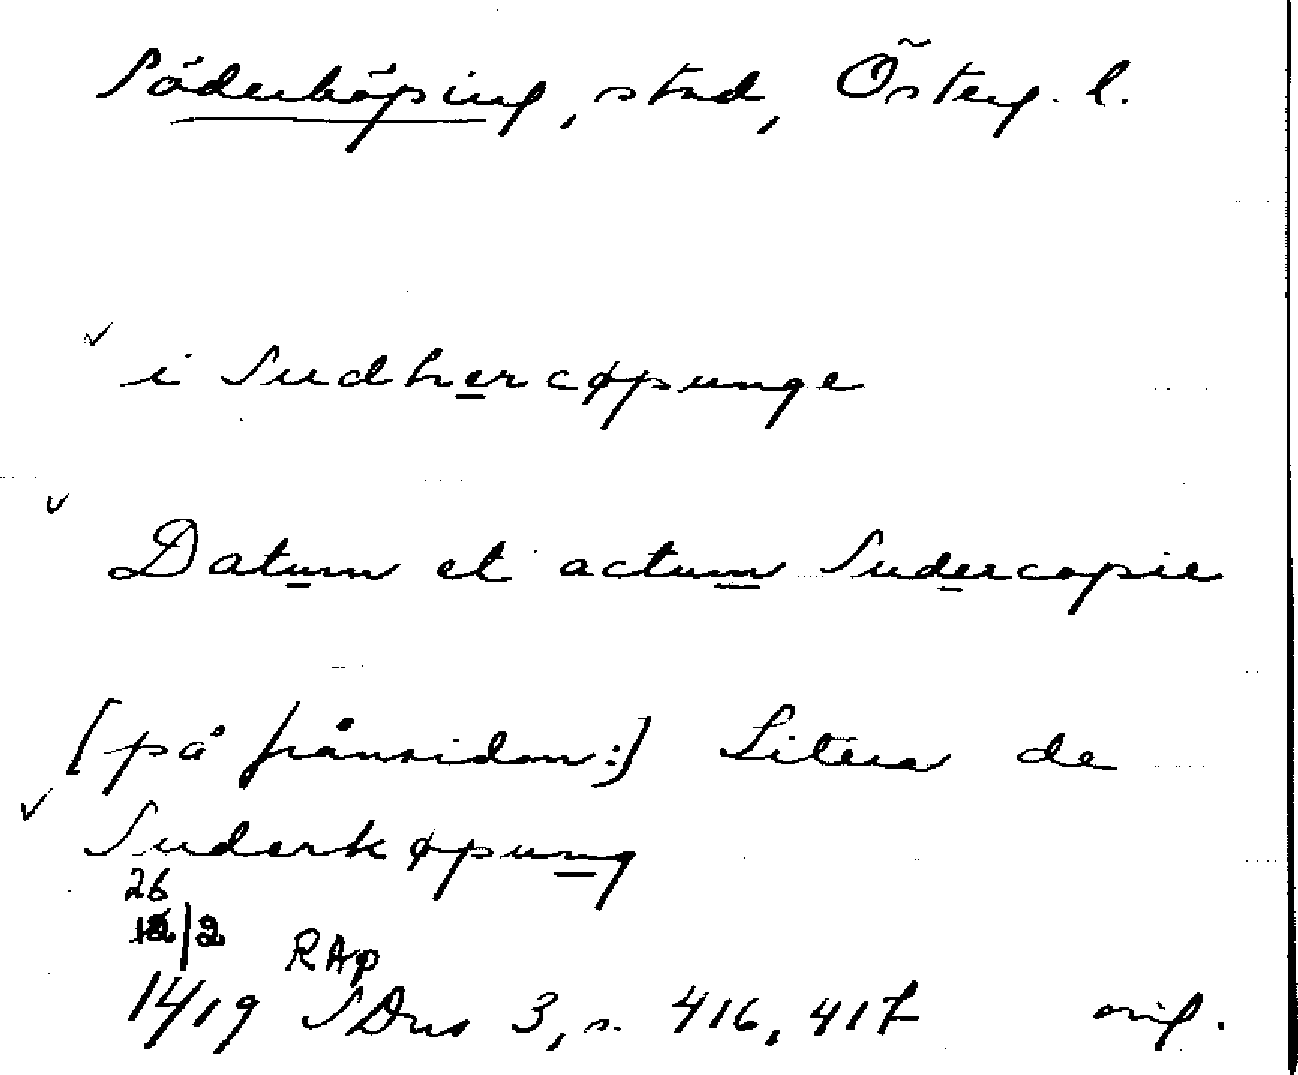 Söderköping, stad, Österg. l.
i Sudhercøpunge
Datum et actum Sudercopie
[på frånsidan:] Litera de
Suderkøpung
26
12/2 RAp
1419 SDns 3, s. 416, 417 orig.